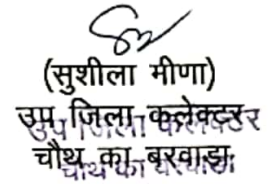 (सुशीला मीणा)
उप जिला कलेक्टर
चौथ का बरवाड़ा